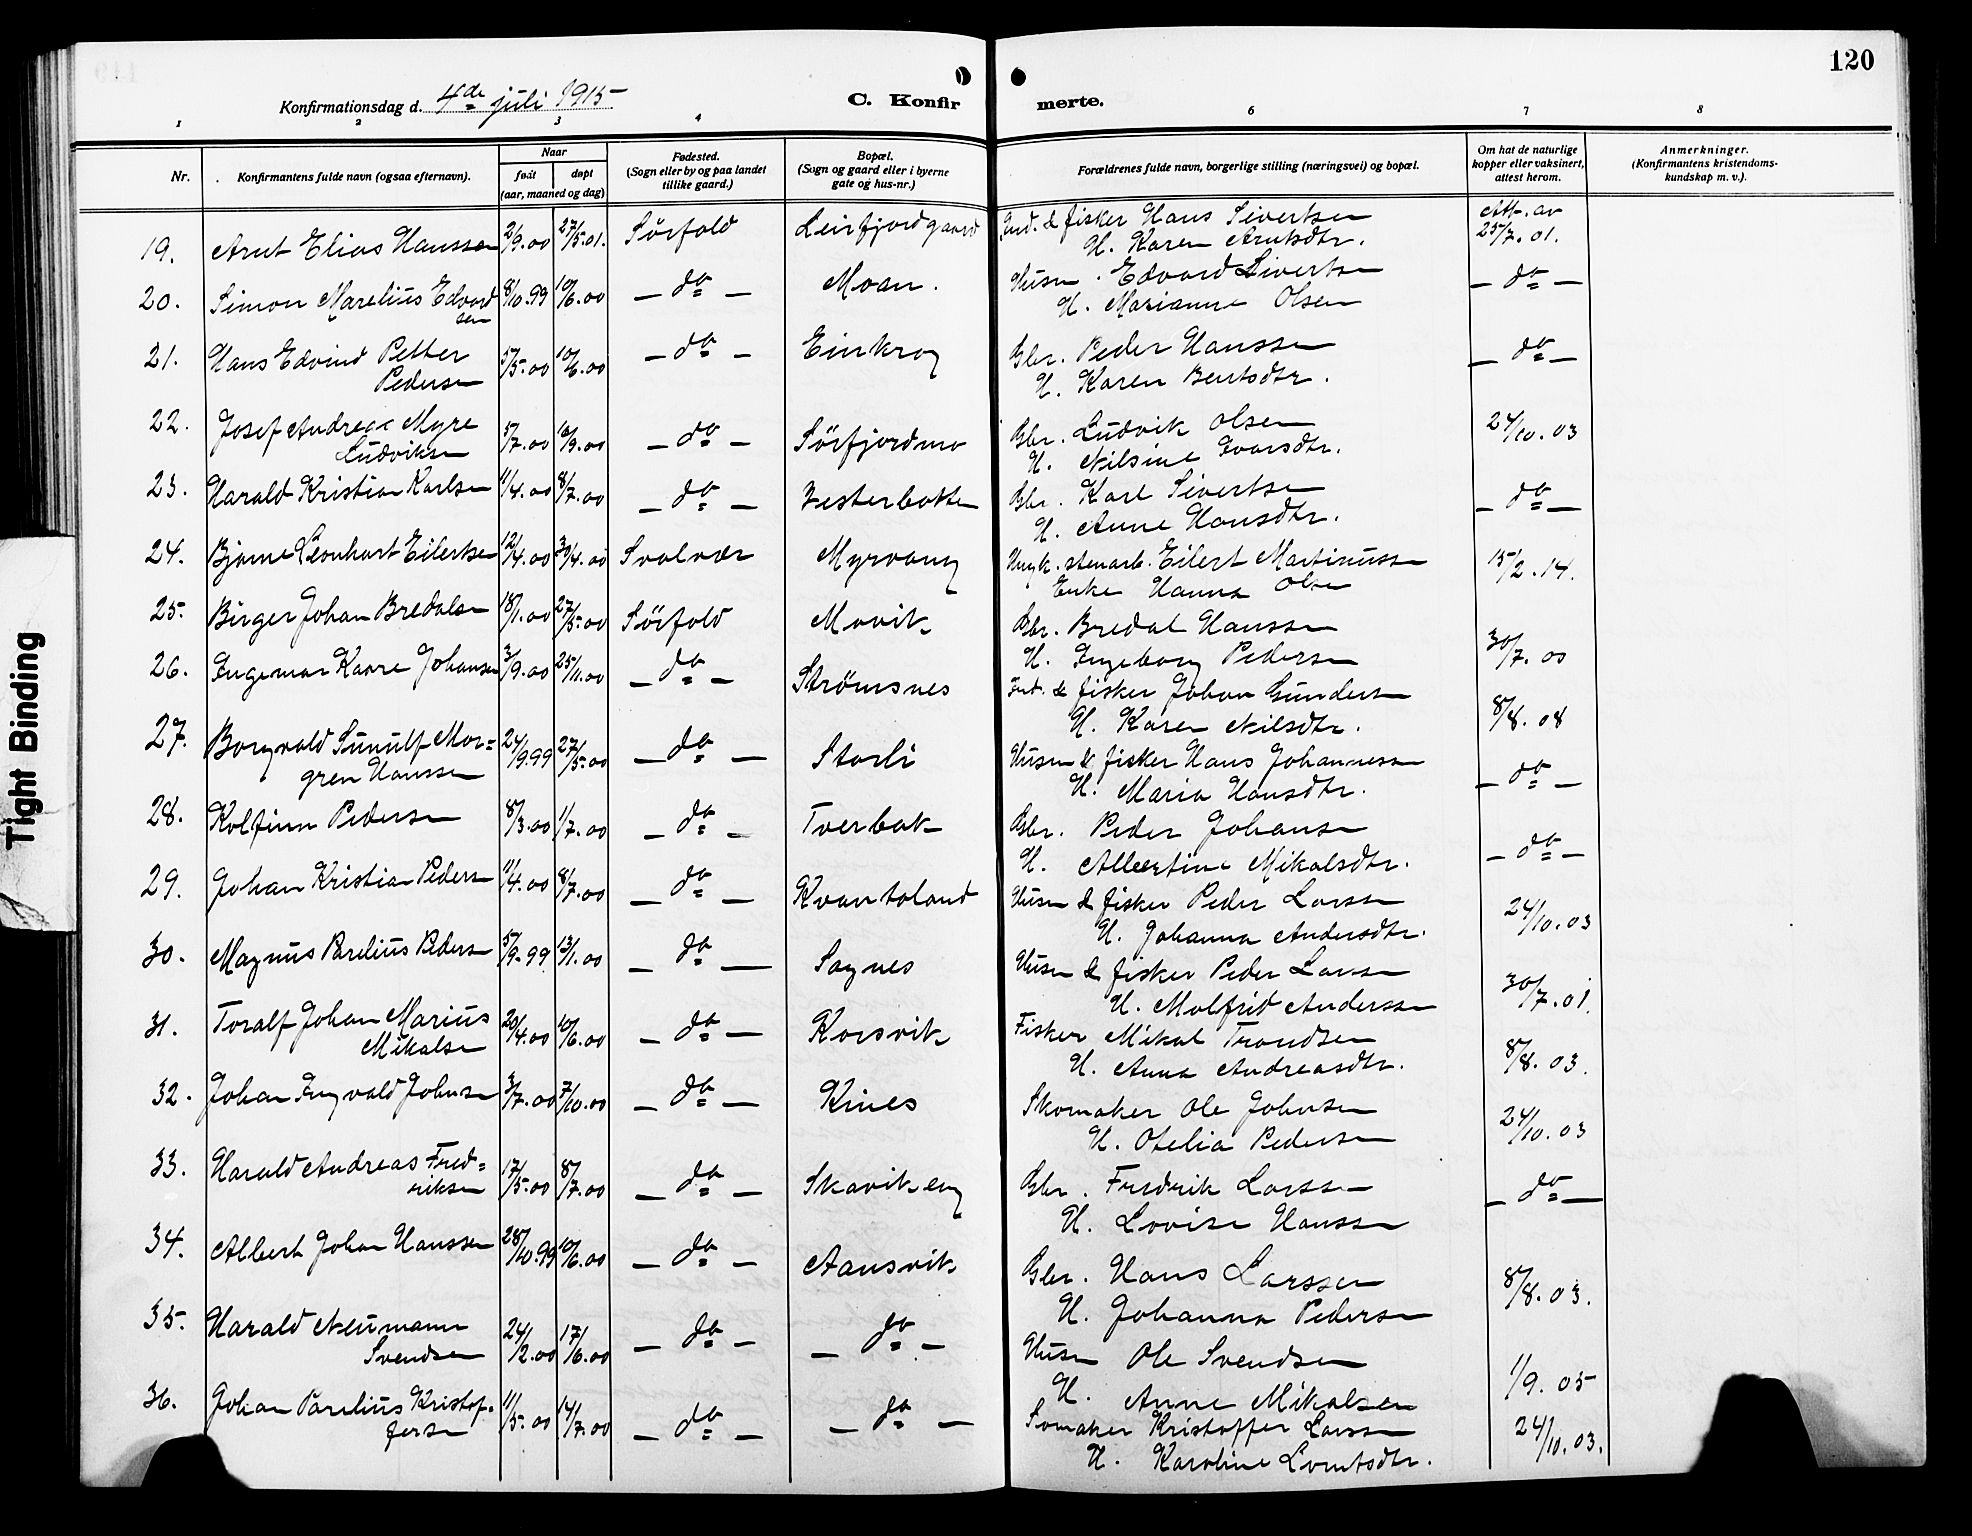 120
Konfirmationsdag d. 4de juli 1915
C. Konfirmerte.
1 2 3 4 6 7 8
Nr.
Konfirmantens fulde navn (ogsaa efternavn).
Naar
født døpt
(aar, maaned og dag)
Fødested.
(Sogn eller by og paa landet
tillike gaard.)
Bopæl.
(Sogn og gaard eller i byerne
gate og hus-nr.)
Forældrenes fulde navn, borgerlige stilling (næringsvei) og bopæl.
Om hat de naturlige
kopper eller vaksinert,
attest herom.
Anmerkninger.
(Konfirmantens kristendoms-
kundskap m. v.).
19. Arnt Elias Hanssen 2/9.00 27/5.01. Sörfold Leirfjordgaard Ind. & fisker Hans Sivertsen Att. av
H. Karen Arntsdtr. 25/7.01.
20. Simon Marelius Edvard 8/10.99 10/6.00 — do — Moan. Husm. Edvard Sivertsen — do —
sen H. Marianne Olsen
21. Hans Edvind Petter 5/5.00 10/6.00 — do — Einkrog Gbr. Peder Hanssen — do —
Pedersen H. Karen Bentsdtr.
22. Josef Andreas Myre 5/7.00 16/9.00 — do — Sörfjordmo Gbr. Ludvik Olsen 24/10.03
Ludviksen H. Nilsine Ivarsdtr.
23. Harald Kristian Karlsen 11/4.00 8/7.00 — do — Vesterbotten Gbr. Karl Sivertsen — do —
H. Anne Hansdtr.
24. Bjarne Leonhart Eilertsen 12/4.00 30/4.00 Svolvær Myrvang Ungk. stenarb. Eilert Martinussen 15/2.14.
Enke Hanna Olsen
25. Birger Johan Bredalsen 18/1.00 27/5.00 Sörfold Movik Gbr. Bredal Hanssen 30/7.00
H. Ingeborg Pedersen
26. Ingemar Kaare Johansen 3/9.00 25/11.00 — do — Strömsnes Ind. & fisker Johan Gundersen 8/8.08
H. Karen Nilsdtr.
27. Borgvald Sunulf Mor= 24/9.99 27/5.00 — do — Storli Husm. & fisker Hans Johannessen — do —
gren Hanssen H. Maria Hansdtr.
28. Kolfinn Pedersen 8/3.00 1/7.00 — do — Tverbak Gbr. Peder Johansen — do —
H. Albertine Mikalsdtr.
29. Johan Kristian Pedersen 11/4.00 8/7.00 — do — Kvantoland Husm & fisker Peder Larssen 24/10.03
H. Johanna Andersdtr.
30. Magnus Parelius Pedersen 5/9.99 13/1.00 — do — Sagnes Husm & fisker Peder Larssen 30/7.01.
H. Molfrid Anderssen
31. Toralf Johan Marius 20/4.00 10/6.00 — do — Korsvik Fisker Mikal Trondsen 8/8.03.
Mikalsen H. Anna Andreasdtr.
32. Johan Ingvald Johnsen 3/7.00 7/10.00 — do — Kines Skomaker Ole Johnsen 24/10.03
H. Otelia Pedersen
33. Harald Andreas Fred= 17/5.00 8/7.00 — do — Skavikeng Gbr. Fredrik Larssen — do —
riksen H. Lovise Hanssen
34. Albert Johan Hanssen 28/10.99 10/6.00 — do — Aansvik Gbr. Hans Larssen 8/8.03.
H. Johanna Pedersen
35. Harald Neumann 24/2.00 17/6.00 — do — — do — Husm Ole Svendsen 1/9.05
Svendsen H. Anne Mikalsen
36. Johan Parelius Kristof- 11/5.00 14/7.00 — do — — do — Kristoffer Larssen 24/10.03.
fersen H. Karoline Lorntsdtr.
Tight Binding